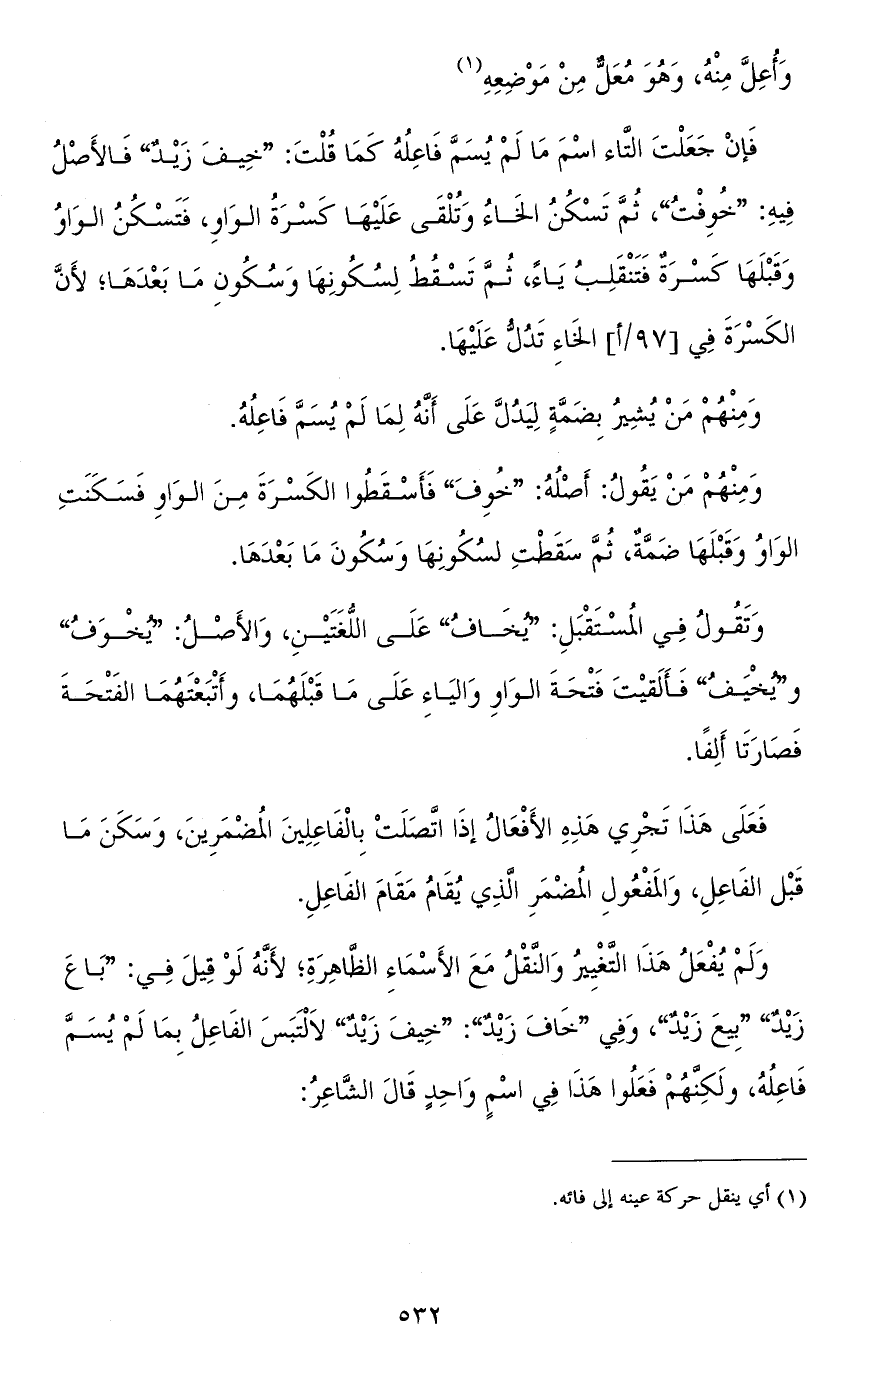 وَأُعِلَّ مِنْهُ، وَهُوَ مُعَلٌّ مِنْ مَوْضِعِهِ(١)
فَإِنْ جَعَلْتَ التَّاء اسْمَ مَا لَمْ يُسَمَّ فَاعِلُهُ كَمَا قُلْتَ: ”خِيـفَ زَيْـدٌ“ فَـالأَصْلُ
فِيهِ: ”خُوِفْتُ“، ثُمَّ تَسْكُنُ الخَـاءُ وَتُلْقَـى عَلَيْهَـا كَسْرَةُ الـوَاوِ، فَتَسْـكُنُ الـوَاوُ
وَقَبْلَهَا كَسْـرَةٌ فَتَنْقَلِـبُ يَـاءً، ثُـمَّ تَسْـقُطُ لِسُـكُونِهَا وَسُـكُونِ مَـا بَعْدَهَـا؛ لأَنَّ
الكَسْرَةَ فِي [٩٧/أ] الخَاءِ تَدُلُّ عَلَيْهَا.
وَمِنْهُمْ مَنْ يُشِيرُ بِضَمَّةٍ لِيَدُلَّ عَلَى أَنَّهُ لِمَا لَمْ يُسَمَّ فَاعِلُهُ.
وَمِنْهُمْ مَنْ يَقُولُ: أَصْلُهُ: ”خُوِفَ“ فَأَسْـقَطُوا الكَسْـرَةَ مِـنَ الـوَاوِ فَسَـكَنَتِ
الوَاوُ وَقَبْلَهَا ضَمَّةٌ، ثُمَّ سَقَطَتِ لسُكُونِهَا وَسُكُونَ مَا بَعْدَهَا.
وَتَقُـولُ فِـي المُسْـتَقْبَلِ: ”يُخَـافُ“ عَلَـى اللُّغَتَيْـنِ، وَالأَصْـلُ: ”يُخْـوَفُ“
و”يُخْيَـفُ“ فَـأَلقَيْتَ فَتْحَـةَ الـوَاوِ وَاليَـاءِ عَلَـى مَـا قَبْلَهُمَـا، وأَتْبَعْتَهُمَـا الفَتْحَـةَ
فَصَارَتَا أَلِفًا.
فَعَلَى هَذَا تَجْرِي هَذِهِ الأَفْعَالُ إِذَا اتَّصَلَتْ بِالْفَاعِلِينَ المُضْمَرِينَ، وَسَكَنَ مَـا
قَبْل الفَاعِلِ، وَالمَفْعُولِ المُضْمَرِ الَّذِي يُقَامُ مَقَامَ الفَاعِلِ.
وَلَمْ يُفْعَلُ هَذَا التَّغْيِيرُ وَالنَّقْلُ مَعَ الأَسْمَاءِ الظَّاهِرَةِ؛ لأَنَّهُ لَوْ قِيلَ فِـي: ”بَـاعَ
زَيْدٌ“ ”بِيعَ زَيْدٌ“، وَفِي ”خَافَ زَيْدٌ“: ”خِيفَ زَيْدٌ“ لاَلْتَبَسَ الفَاعِلُ بِمَا لَمْ يُسَـمَّ
فَاعِلُهُ، ولَكِنَّهُمْ فَعَلُوا هَذَا فِي اسْمٍ وَاحِدٍ قَالَ الشَّاعِرُ:
(١) أي ينقل حركة عينه إلى فائه.
٥٣٢